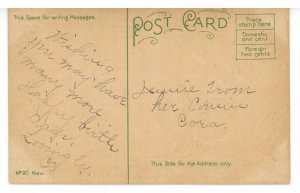 This Space for writing Messages.
POST CARD
Place
stamp here
Domestic
one cent
Foreign
two cents
Wishing
you may have
many more
birth
From
her Cousin
Cora.
This Side for the Address only.
Nº 80. New